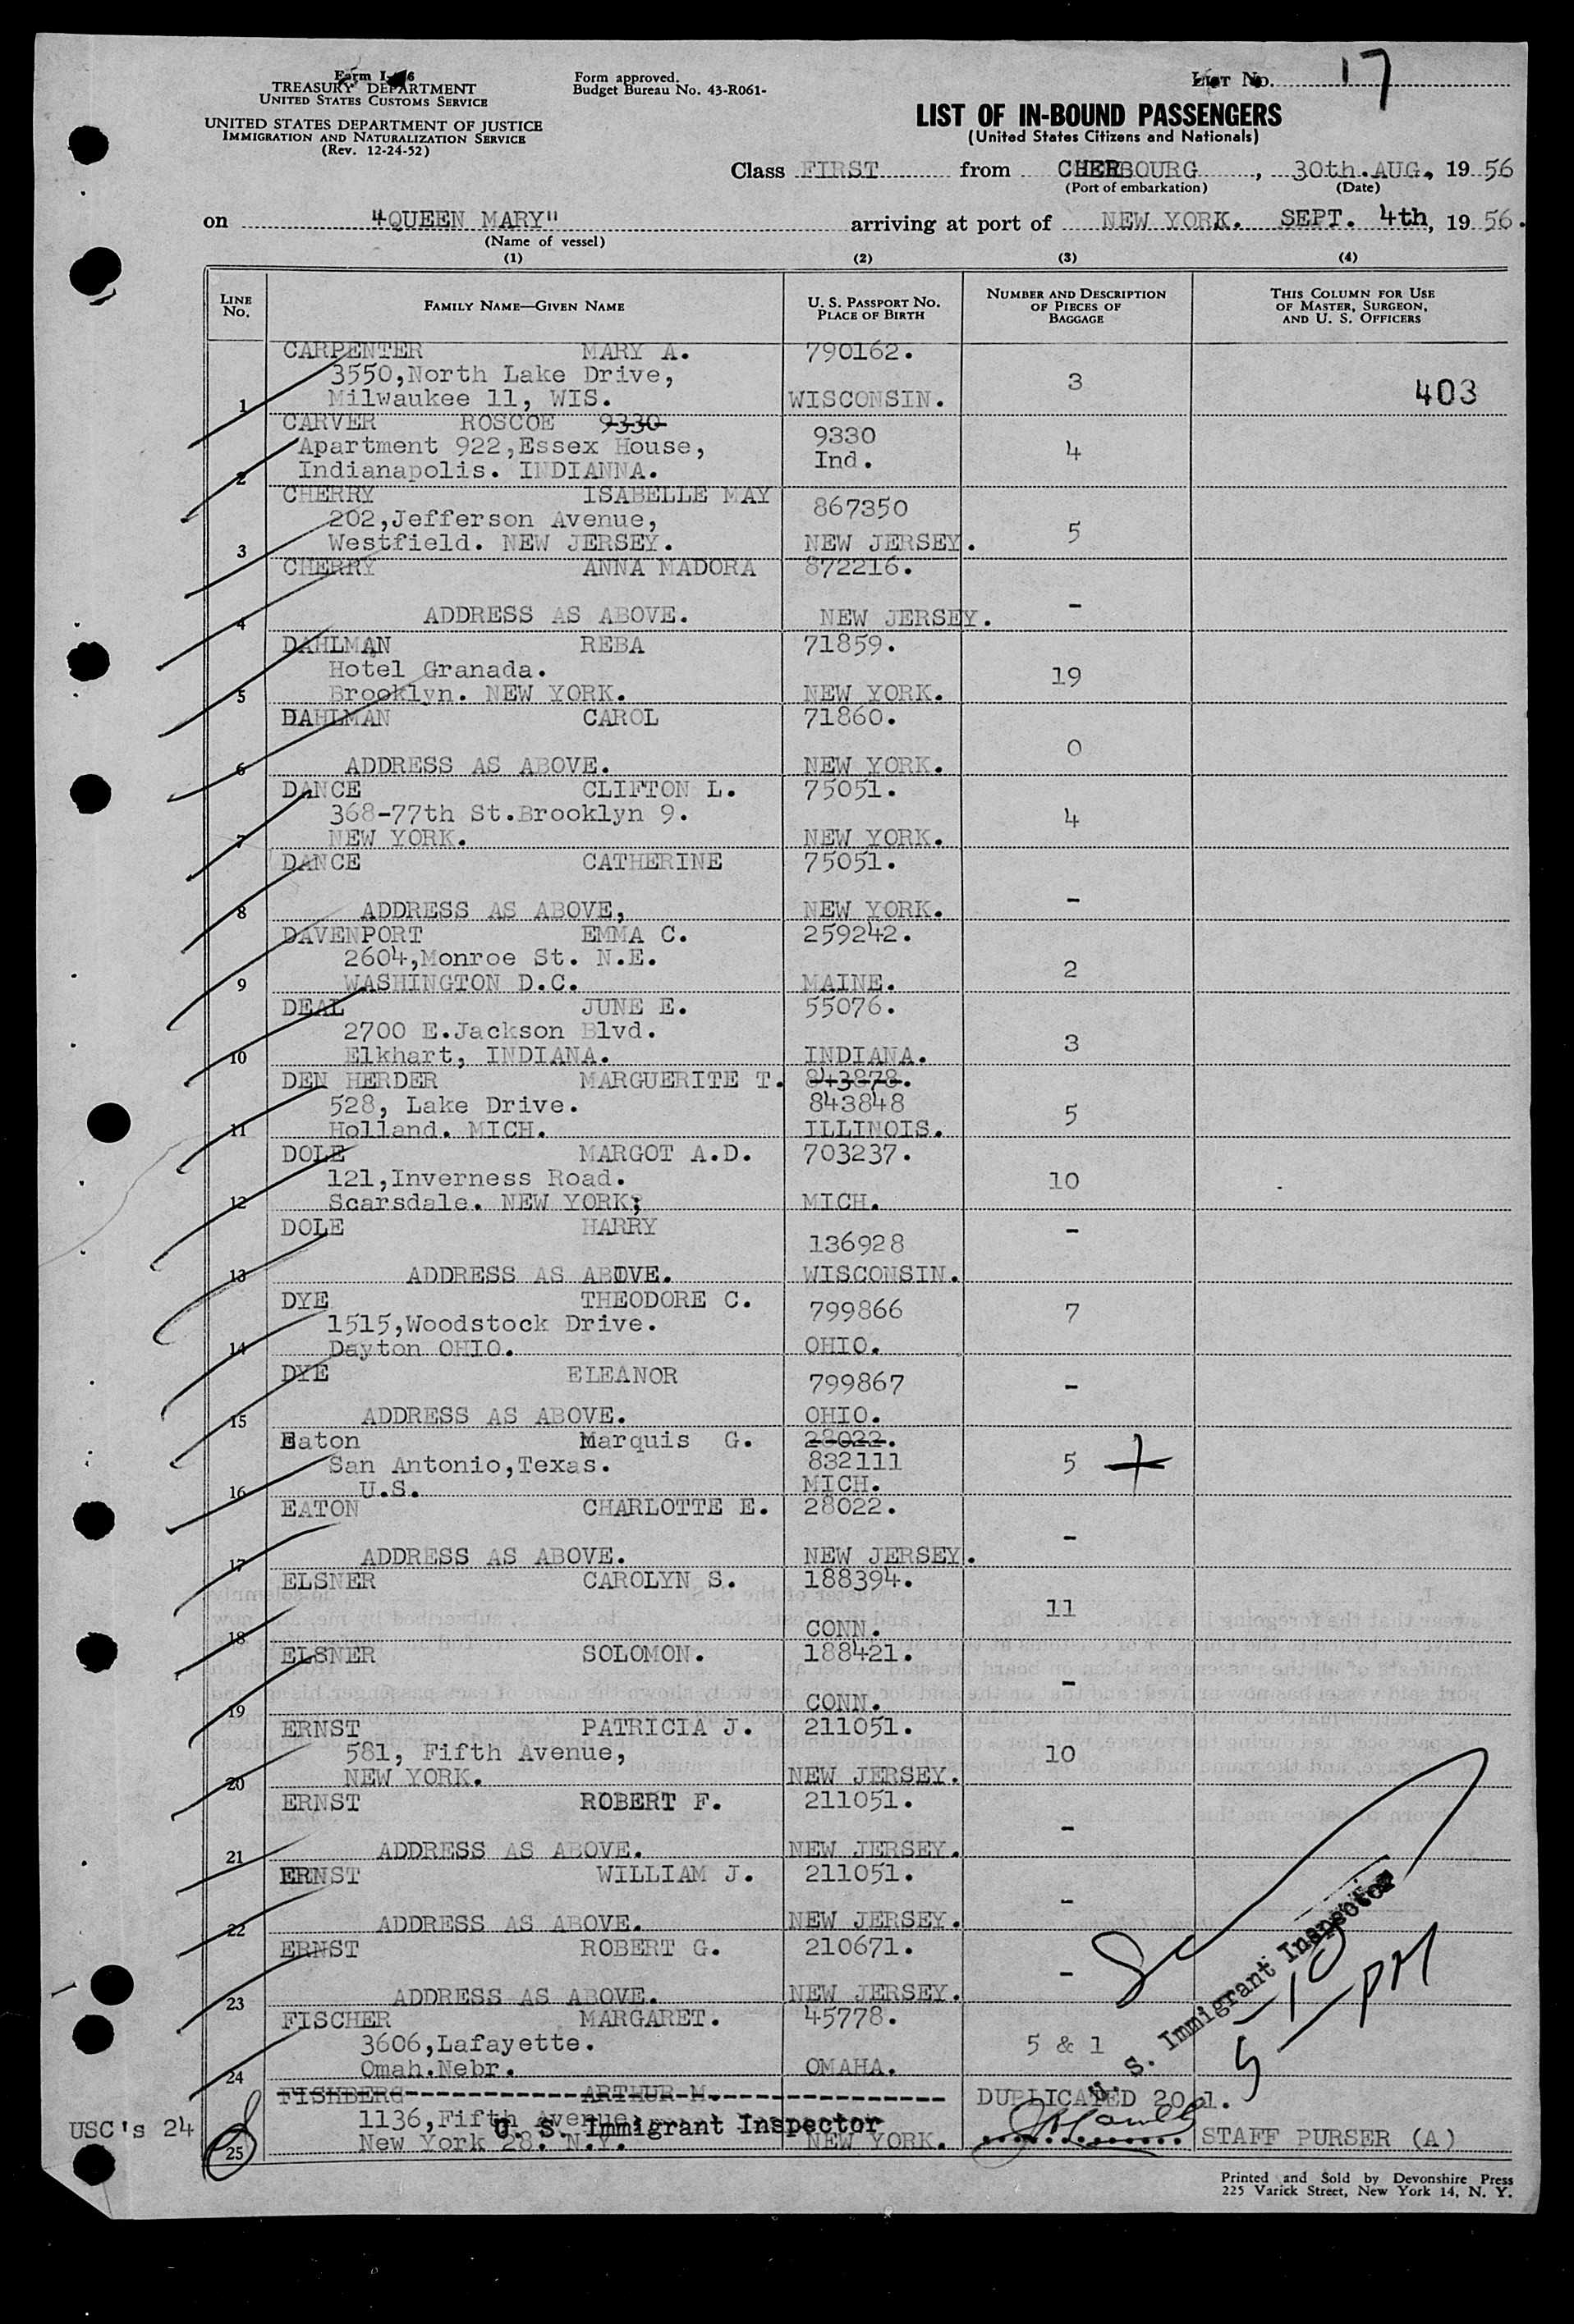 Form I-
TREASURY DEPARTMENT
UNITED STATES CUSTOMS SERVICE
UNITED STATES DEPARTMENT OF JUSTICE
IMMIGRATION AND NATURALIZATION SERVICE
(Rev. 12-24-52)
Form approved.
Budget Bureau No. 43-R061-
LIST No. 17
LIST OF IN-BOUND PASSENGERS
(United States Citizens and Nationals)
Class FIRST from CHERBOURG, 30th.AUG, 19 56
(Port of embarkation) (Date)
on "QUEEN MARY" arriving at port of NEW YORK. SEPT. 4th, 19 56.
(Name of vessel)
(1) (2) (3) (4)
LINE No. FAMILY NAME—GIVEN NAME U. S. PASSPORT NO. PLACE OF BIRTH NUMBER AND DESCRIPTION OF PIECES OF BAGGAGE THIS COLUMN FOR USE OF MASTER, SURGEON, AND U. S. OFFICERS
CARPENTER MARY A. 790162.
3550,North Lake Drive, 3
1 Milwaukee 11, WIS. WISCONSIN. 403
CARVER ROSCOE 9330
Apartment 922,Essex House, 9330 4
2 Indianapolis. INDIANNA. Ind.
CHERRY ISABELLE MAY 867350
202,Jefferson Avenue, 5
3 Westfield. NEW JERSEY. NEW JERSEY.
CHERRY ANNA MADORA 872216.
-
4 ADDRESS AS ABOVE. NEW JERSEY.
DAHLMAN REBA 71859.
Hotel Granada. 19
5 Brooklyn. NEW YORK. NEW YORK.
DAHLMAN CAROL 71860.
0
6 ADDRESS AS ABOVE. NEW YORK.
DANCE CLIFTON L. 75051.
368-77th St.Brooklyn 9. 4
7 NEW YORK. NEW YORK.
DANCE CATHERINE 75051.
-
8 ADDRESS AS ABOVE, NEW YORK.
DAVENPORT EMMA C. 259242.
2604,Monroe St. N.E. 2
9 WASHINGTON D.C. MAINE.
DEAL JUNE E. 55076.
2700 E.Jackson Blvd. 3
10 Elkhart, INDIANA. INDIANA.
DEN HERDER MARGUERITE T. 843878.
528, Lake Drive. 843848 5
11 Holland. MICH. ILLINOIS.
DOLE MARGOT A.D. 703237.
121,Inverness Road. 10
12 Scarsdale. NEW YORK; MICH.
DOLE HARRY -
136928
13 ADDRESS AS ABOVE. WISCONSIN.
DYE THEODORE C. 799866 7
1515,Woodstock Drive.
14 Dayton OHIO. OHIO.
DYE ELEANOR 799867 -
15 ADDRESS AS ABOVE. OHIO.
Eaton Marquis G. 28022.
San Antonio,Texas. 832111 5
16 U.S. MICH.
EATON CHARLOTTE E. 28022.
-
17 ADDRESS AS ABOVE. NEW JERSEY.
ELSNER CAROLYN S. 188394.
11
18 CONN.
ELSNER SOLOMON. 188421.
-
19 CONN.
ERNST PATRICIA J. 211051.
581, Fifth Avenue, 10
20 NEW YORK. NEW JERSEY.
ERNST ROBERT F. 211051.
-
21 ADDRESS AS ABOVE. NEW JERSEY.
ERNST WILLIAM J. 211051.
-
22 ADDRESS AS ABOVE. NEW JERSEY.
ERNST ROBERT G. 210671.
-
23 ADDRESS AS ABOVE. NEW JERSEY.
FISCHER MARGARET. 45778.
3606,Lafayette. 5 & 1
24 Omah.Nebr. OMAHA.
U. S. Immigrant Inspector
5-10 PM
FISHBERG ARTHUR M. DUPLICATED 20 1.
USC's 24 1136,Fifth Avenue,
U. S. Immigrant Inspector
25 New York 28. N.Y. NEW YORK. STAFF PURSER (A)
Printed and Sold by Devonshire Press
225 Varick Street, New York 14, N. Y.